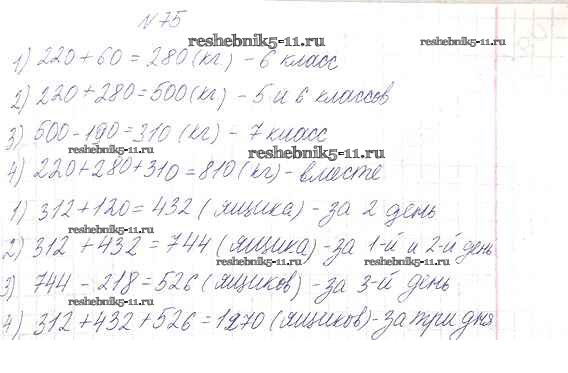 №75
1) 220+60=280(кг) - 6 класс
reshebnik5-11.ru
reshebnik5-11.ru
2) 220+280=500(кг) - 5 и 6 классов
3) 500-190=310 (кг) - 7 класс
reshebnik5-11.ru
reshebnik5-11.ru
4) 220+280+310=810(кг) - вместе
1) 312+120=432 (ящика) - за 2 день
reshebnik5-11.ru
2) 312+432=744 (ящика) - за 1-й и 2-й день
reshebnik5-11.ru
reshebnik5-11.ru
3) 744-218=526 (ящиков) - за 3-й день
reshebnik5-11.ru
4) 312+432+526=1270 (ящиков) - за три дня